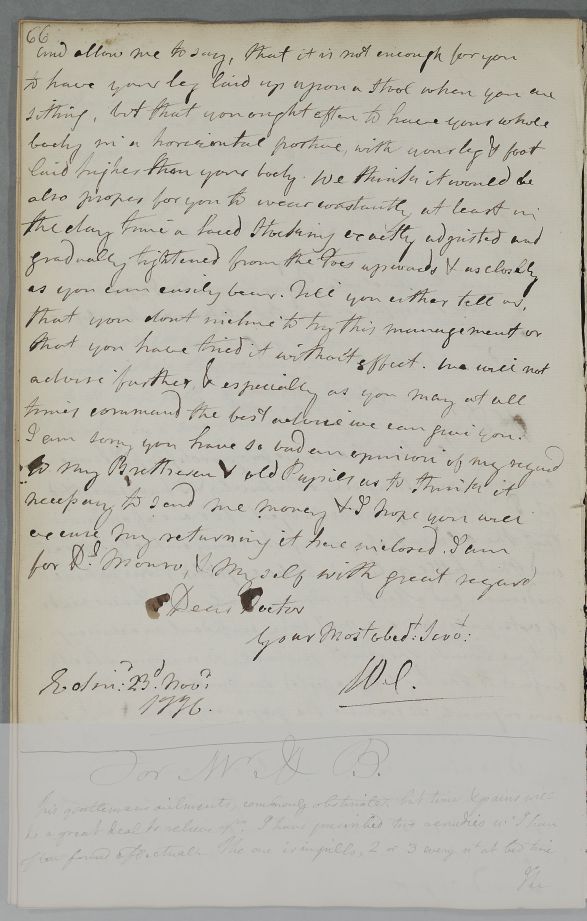 66
and allow me to say, that it is not enough for you
to have your leg laid up upon a Stool when you are
sitting, but that you ought often to have your whole
body in a horizontal posture, with your leg & foot
laid higher than your body. We think it would be
also proper for you to wear constantly at least in
the day time a laced Stocking exactly adjusted and
gradually tightened from the Toes upwards & as closely
as you can easily bear. Till you either tell us,
that you dont incline to try this management or
that you have tried it without effect. we will not
advise further, & especially as you may at all
times command the best advice we can give you.
I am sorry you have so bad an opinion of my regard
to my Brethren & old Pupils as to think it
necessary to send me money & I hope you will
excuse my returning it here inclosed. I am
for Dr. Monro, & myself with great regard
Dear Doctor
Your Most obedt: Servt:
Edinr: 23d. Novr
1776.
WC.
For Mr B.
This gentlemans ailments, commonly obstinate, but time & pains will
do a great deal to relieve. I have prescribed two remedies wt I have
often found effectual. The one is in pills, 2 or 3 every nt at bed time